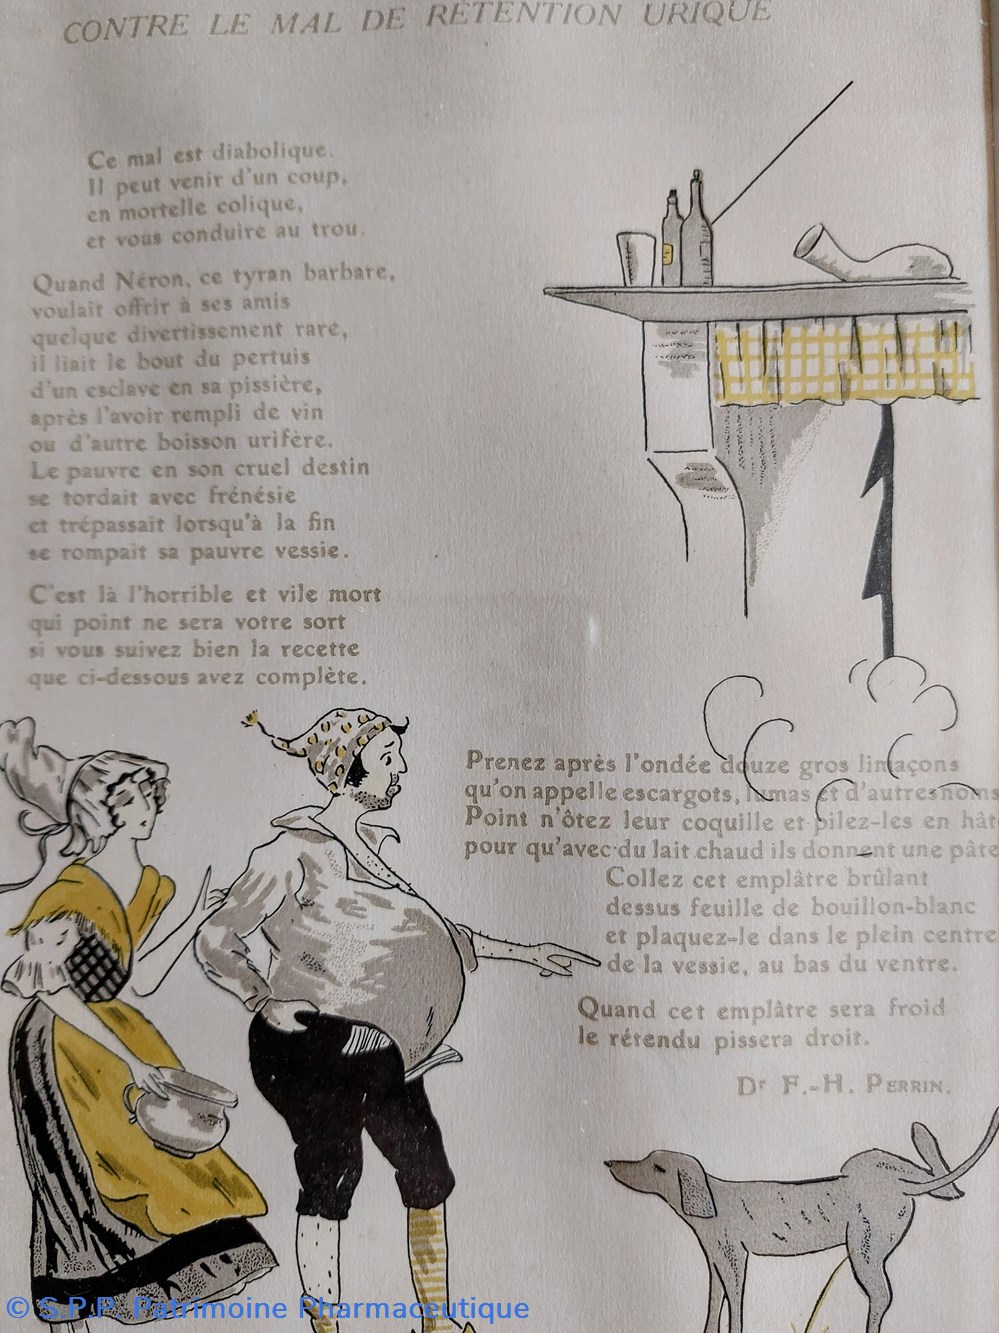 CONTRE LE MAL DE RÉTENTION URIQUE
Ce mal est diabolique.
Il peut venir d'un coup,
en mortelle colique,
et vous conduire au trou.
Quand Néron, ce tyran barbare,
voulait offrir à ses amis
quelque divertissement rare,
il liait le bout du pertuis
d'un esclave en sa pissière,
après l'avoir rempli de vin
ou d'autre boisson urifère.
Le pauvre en son cruel destin
se tordait avec frénésie
et trépassait lorsqu'à la fin
se rompait sa pauvre vessie.
C'est là l'horrible et vile mort
qui point ne sera votre sort
si vous suivez bien la recette
que ci-dessous avez complète.
Prenez après l'ondée douze gros limaçons
qu'on appelle escargots, lumas et d'autres noms
Point n'ôtez leur coquille et pilez-les en hât
pour qu'avec du lait chaud ils donnent une pâte
Collez cet emplâtre brûlant
dessus feuille de bouillon-blanc
et plaquez-le dans le plein centre
de la vessie, au bas du ventre.
Quand cet emplâtre sera froid
le rétendu pissera droit.
Dr F.-H. PERRIN.
© S.P.P. Patrimoine Pharmaceutique